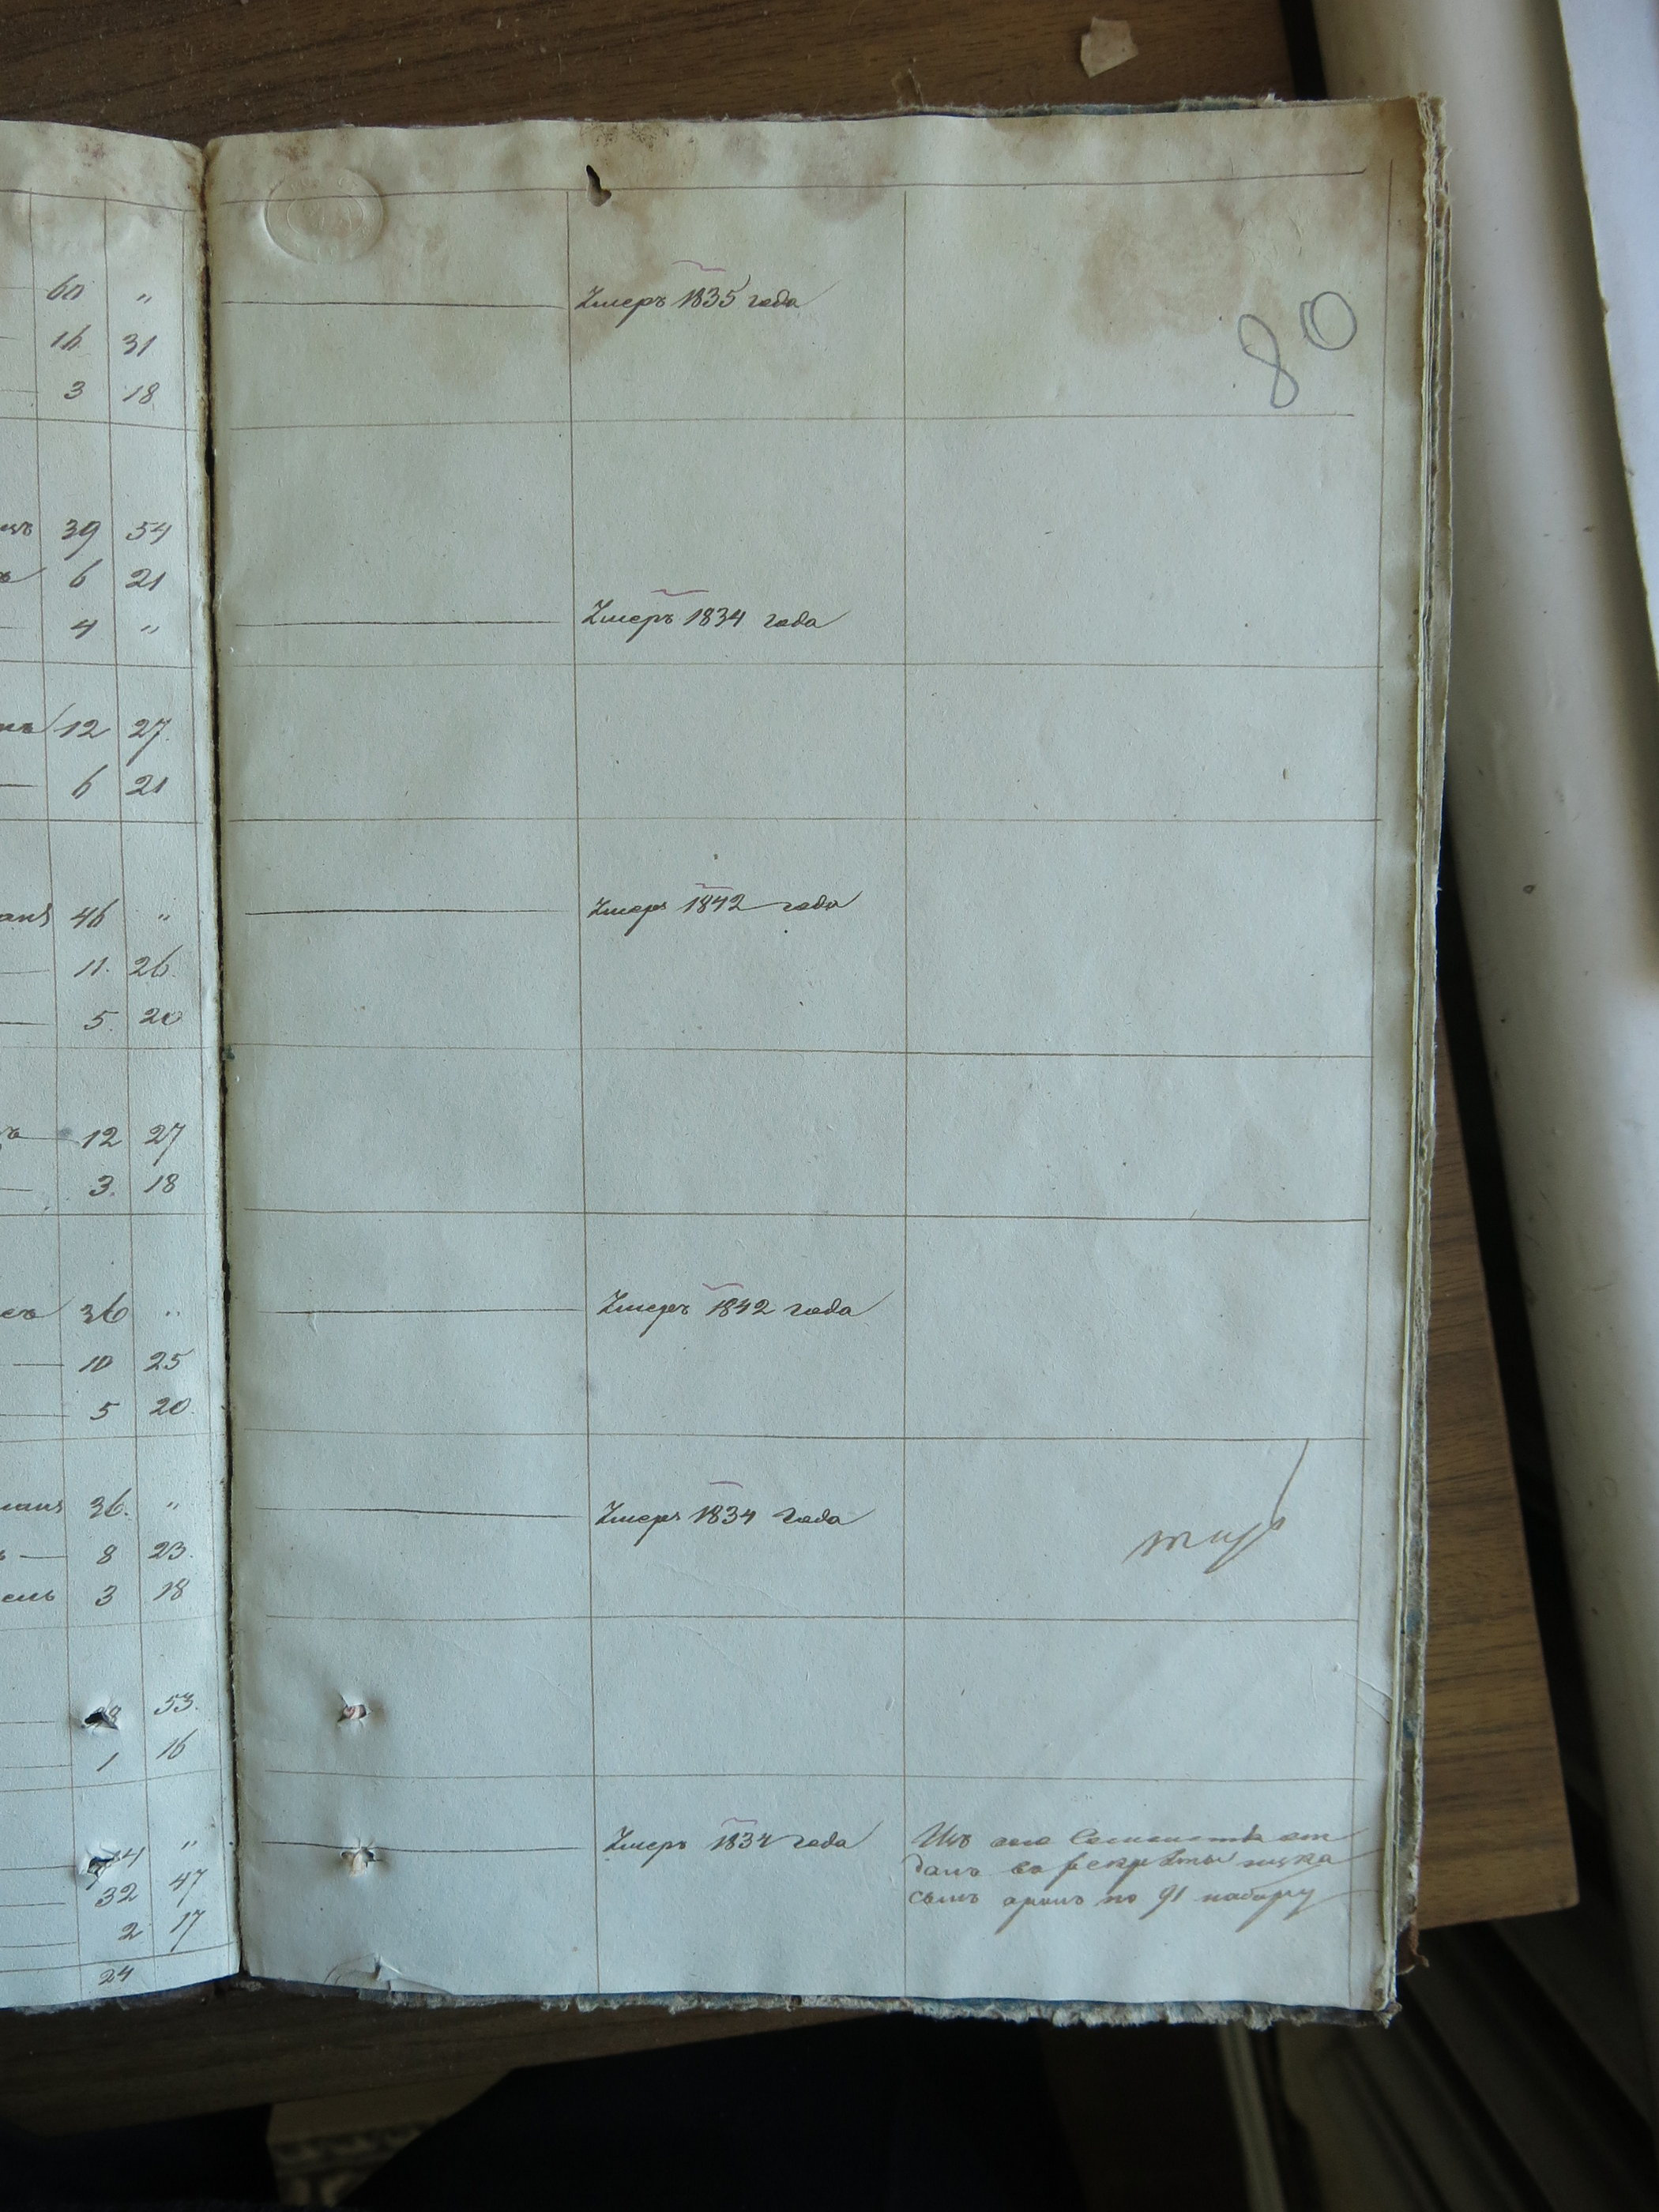 80
60 „ Умеръ 1835 года
16 31
3 18
39 54
6 21
4 „ Умеръ 1834 года
12 27.
6 21
46 „ Умеръ 1842 года
11. 26.
5. 20
12 27
3. 18
36 „ Умеръ 1842 года
10 25
5 20.
36. „ Умеръ 1834 года
8 23.
3 18
53.
1 16
„ Умеръ 1834 года Изъ сего Семейства от
32 47 данъ въ рекруты
2 17 по 91 набору
24